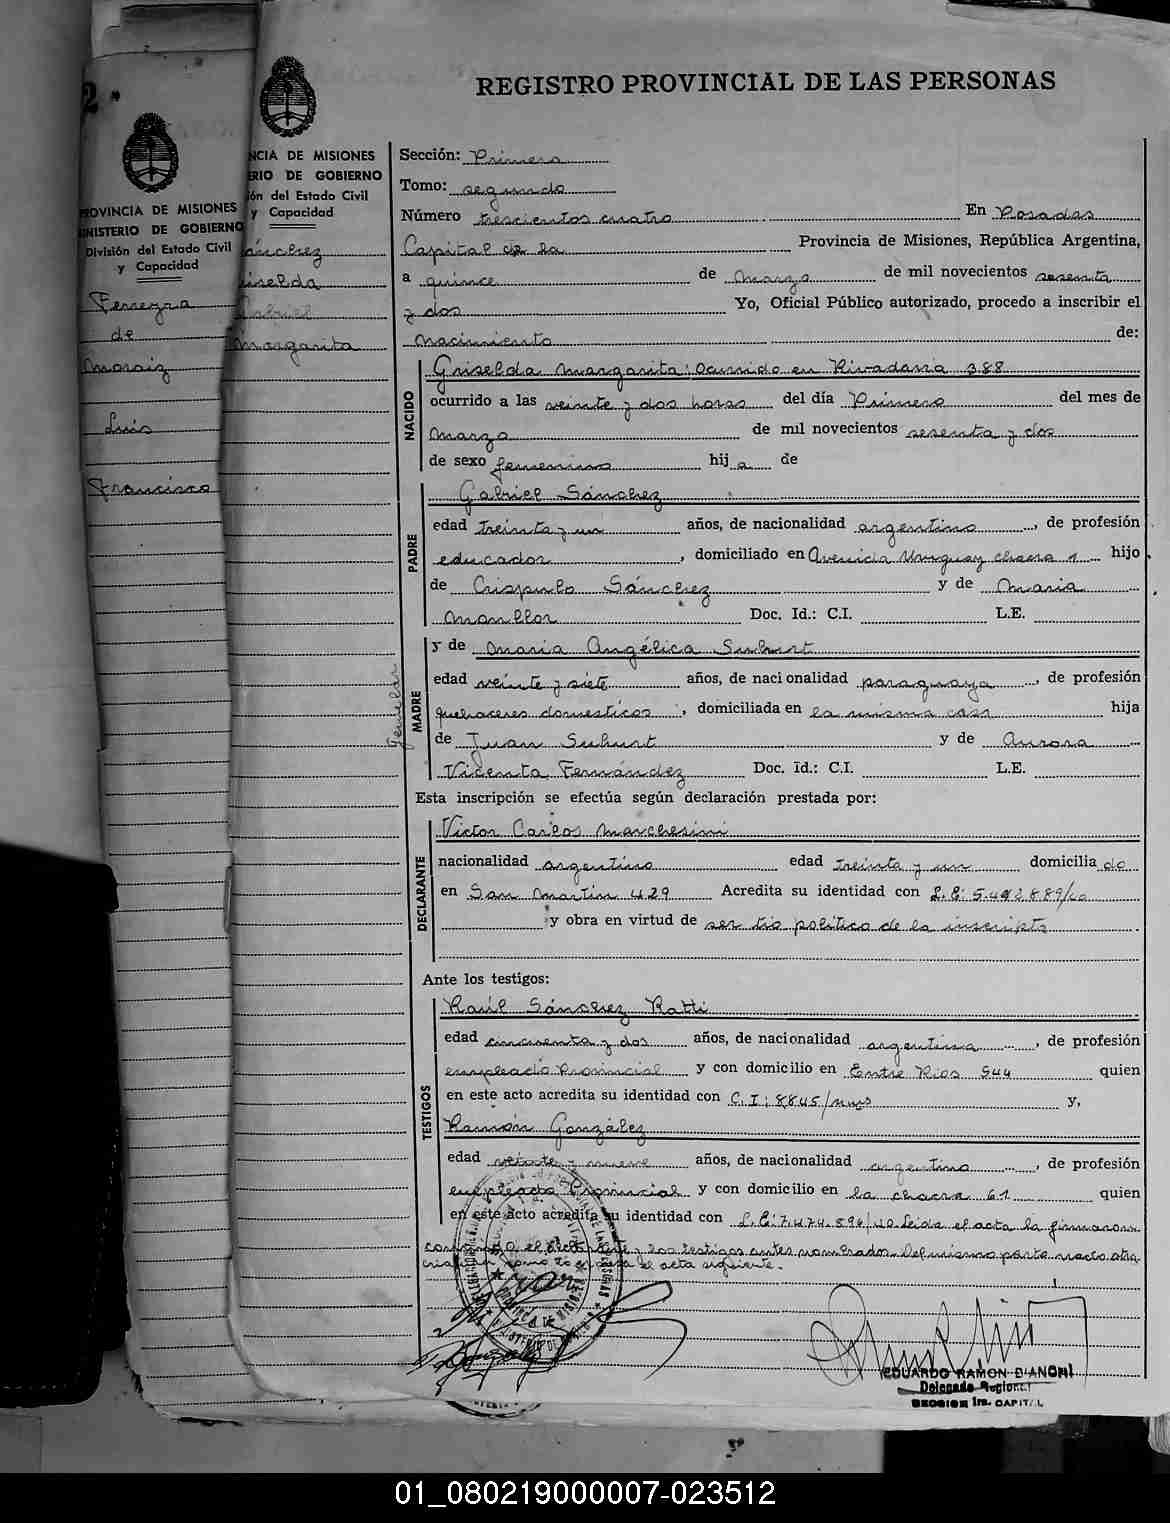 2
PROVINCIA DE MISIONES
MINISTERIO DE GOBIERNO
División del Estado Civil
y Capacidad
Ferreyra
de
Moraiz
Luis
Francisco
NCIA DE MISIONES
ERIO DE GOBIERNO
ión del Estado Civil
y Capacidad
ánchez
iselda
Gabriel
Margarita
Gemelar
REGISTRO PROVINCIAL DE LAS PERSONAS
Sección: Primera
Tomo: segundo
Número trescientos cuatro En Posadas
Capital de la Provincia de Misiones, República Argentina,
a quince de marzo de mil novecientos sesenta
y dos Yo, Oficial Público autorizado, procedo a inscribir el
nacimiento de:
NACIDO
Griselda Margarita: Ocurrido en Rivadavia 388
ocurrido a las veinte y dos horas del día Primero del mes de
marzo de mil novecientos sesenta y dos
de sexo femenino hij a de
PADRE
Gabriel Sánchez
edad treinta y un años, de nacionalidad argentino, de profesión
educador, domiciliado en Avenida Uruguay chacra 1 hijo
de Crispulo Sánchez y de Maria
Monllor Doc. Id.: C.I. L.E.
MADRE
y de Maria Angélica Suhurt
edad veinte y siete años, de nacionalidad paraguaya, de profesión
quehaceres domesticos, domiciliada en la misma casa hija
de Juan Suhurt y de Aurora
Vicenta Fernández Doc. Id.: C.I. L.E.
Esta inscripción se efectúa según declaración prestada por:
DECLARANTE
Victor Carlos Marchesini
nacionalidad argentino edad treinta y un domicilia do
en San Martin 429 Acredita su identidad con L.E:
y obra en virtud de ser tio politico de la inscripta
Ante los testigos:
TESTIGOS
Raúl Sánchez Ratti
edad cincuenta y dos años, de nacionalidad argentina, de profesión
empleado Provincial y con domicilio en Entre Rios 544 quien
en este acto acredita su identidad con C.I: 8845/mns y,
Ramón González
edad veinte y nueve años, de nacionalidad argentino, de profesión
empleado Provincial y con domicilio en la chacra 61 quien
en este acto acredita su identidad con L.E: 7.474.594/40 Leida el acta la firmaron
el declarante y los testigos antes nombrados. Del mismo parto nacio otra
el acta siguiente.
EDUARDO RAMON D'ANGHI
Delegado Regional
SECCION 1ra. CAPITAL
01_080219000007-023512